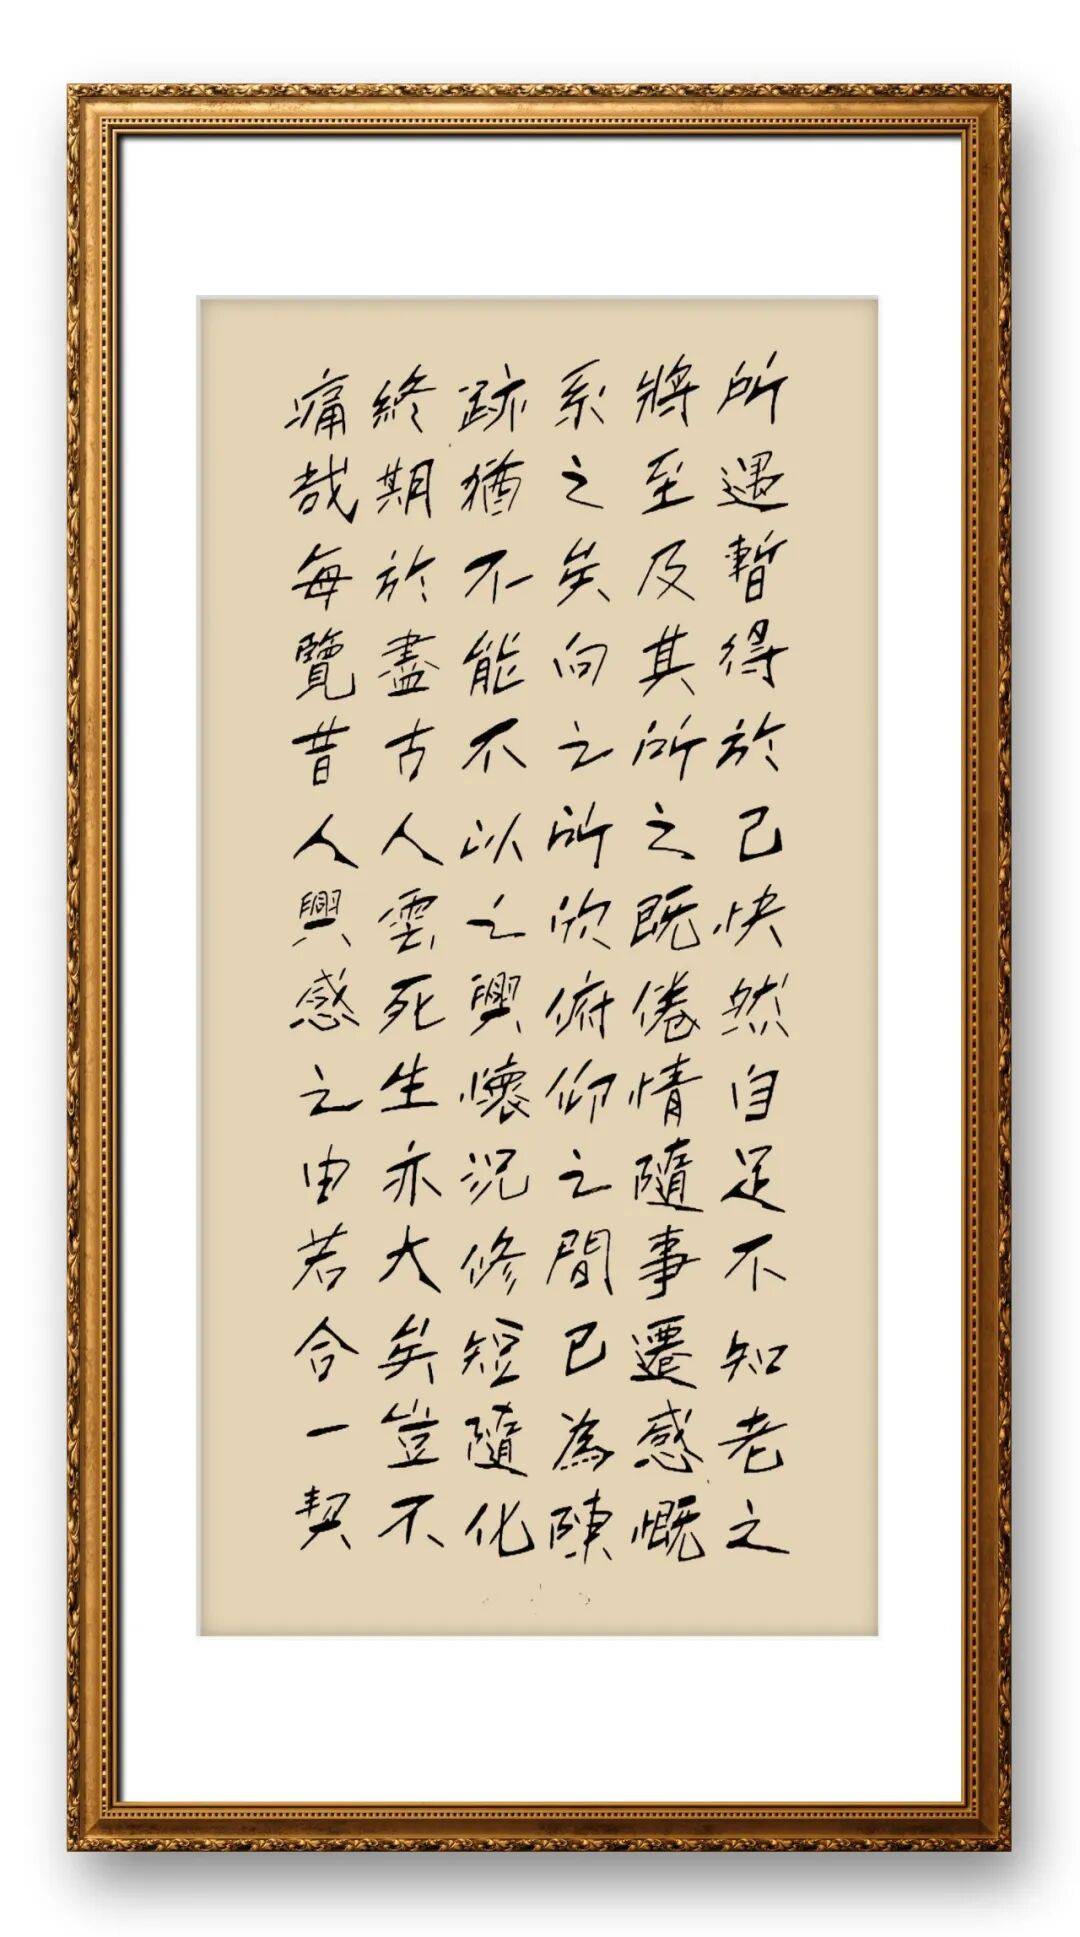 所遇暫得於己快然自足不知老之
將至及其所之既倦情隨事遷感慨
系之矣向之所欣俯仰之間已為陳
跡猶不能不以之興懷況修短隨化
終期於盡古人雲死生亦大矣豈不
痛哉每覽昔人興感之由若合一契